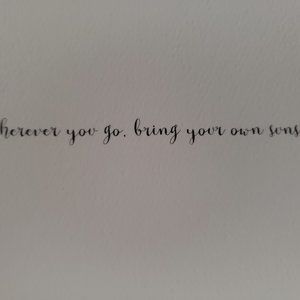 herever you go, bring your own suns